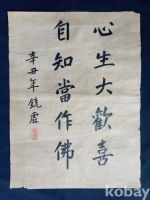 心生大歡喜
自知當作佛
辛丑年 鏡虛
kobay